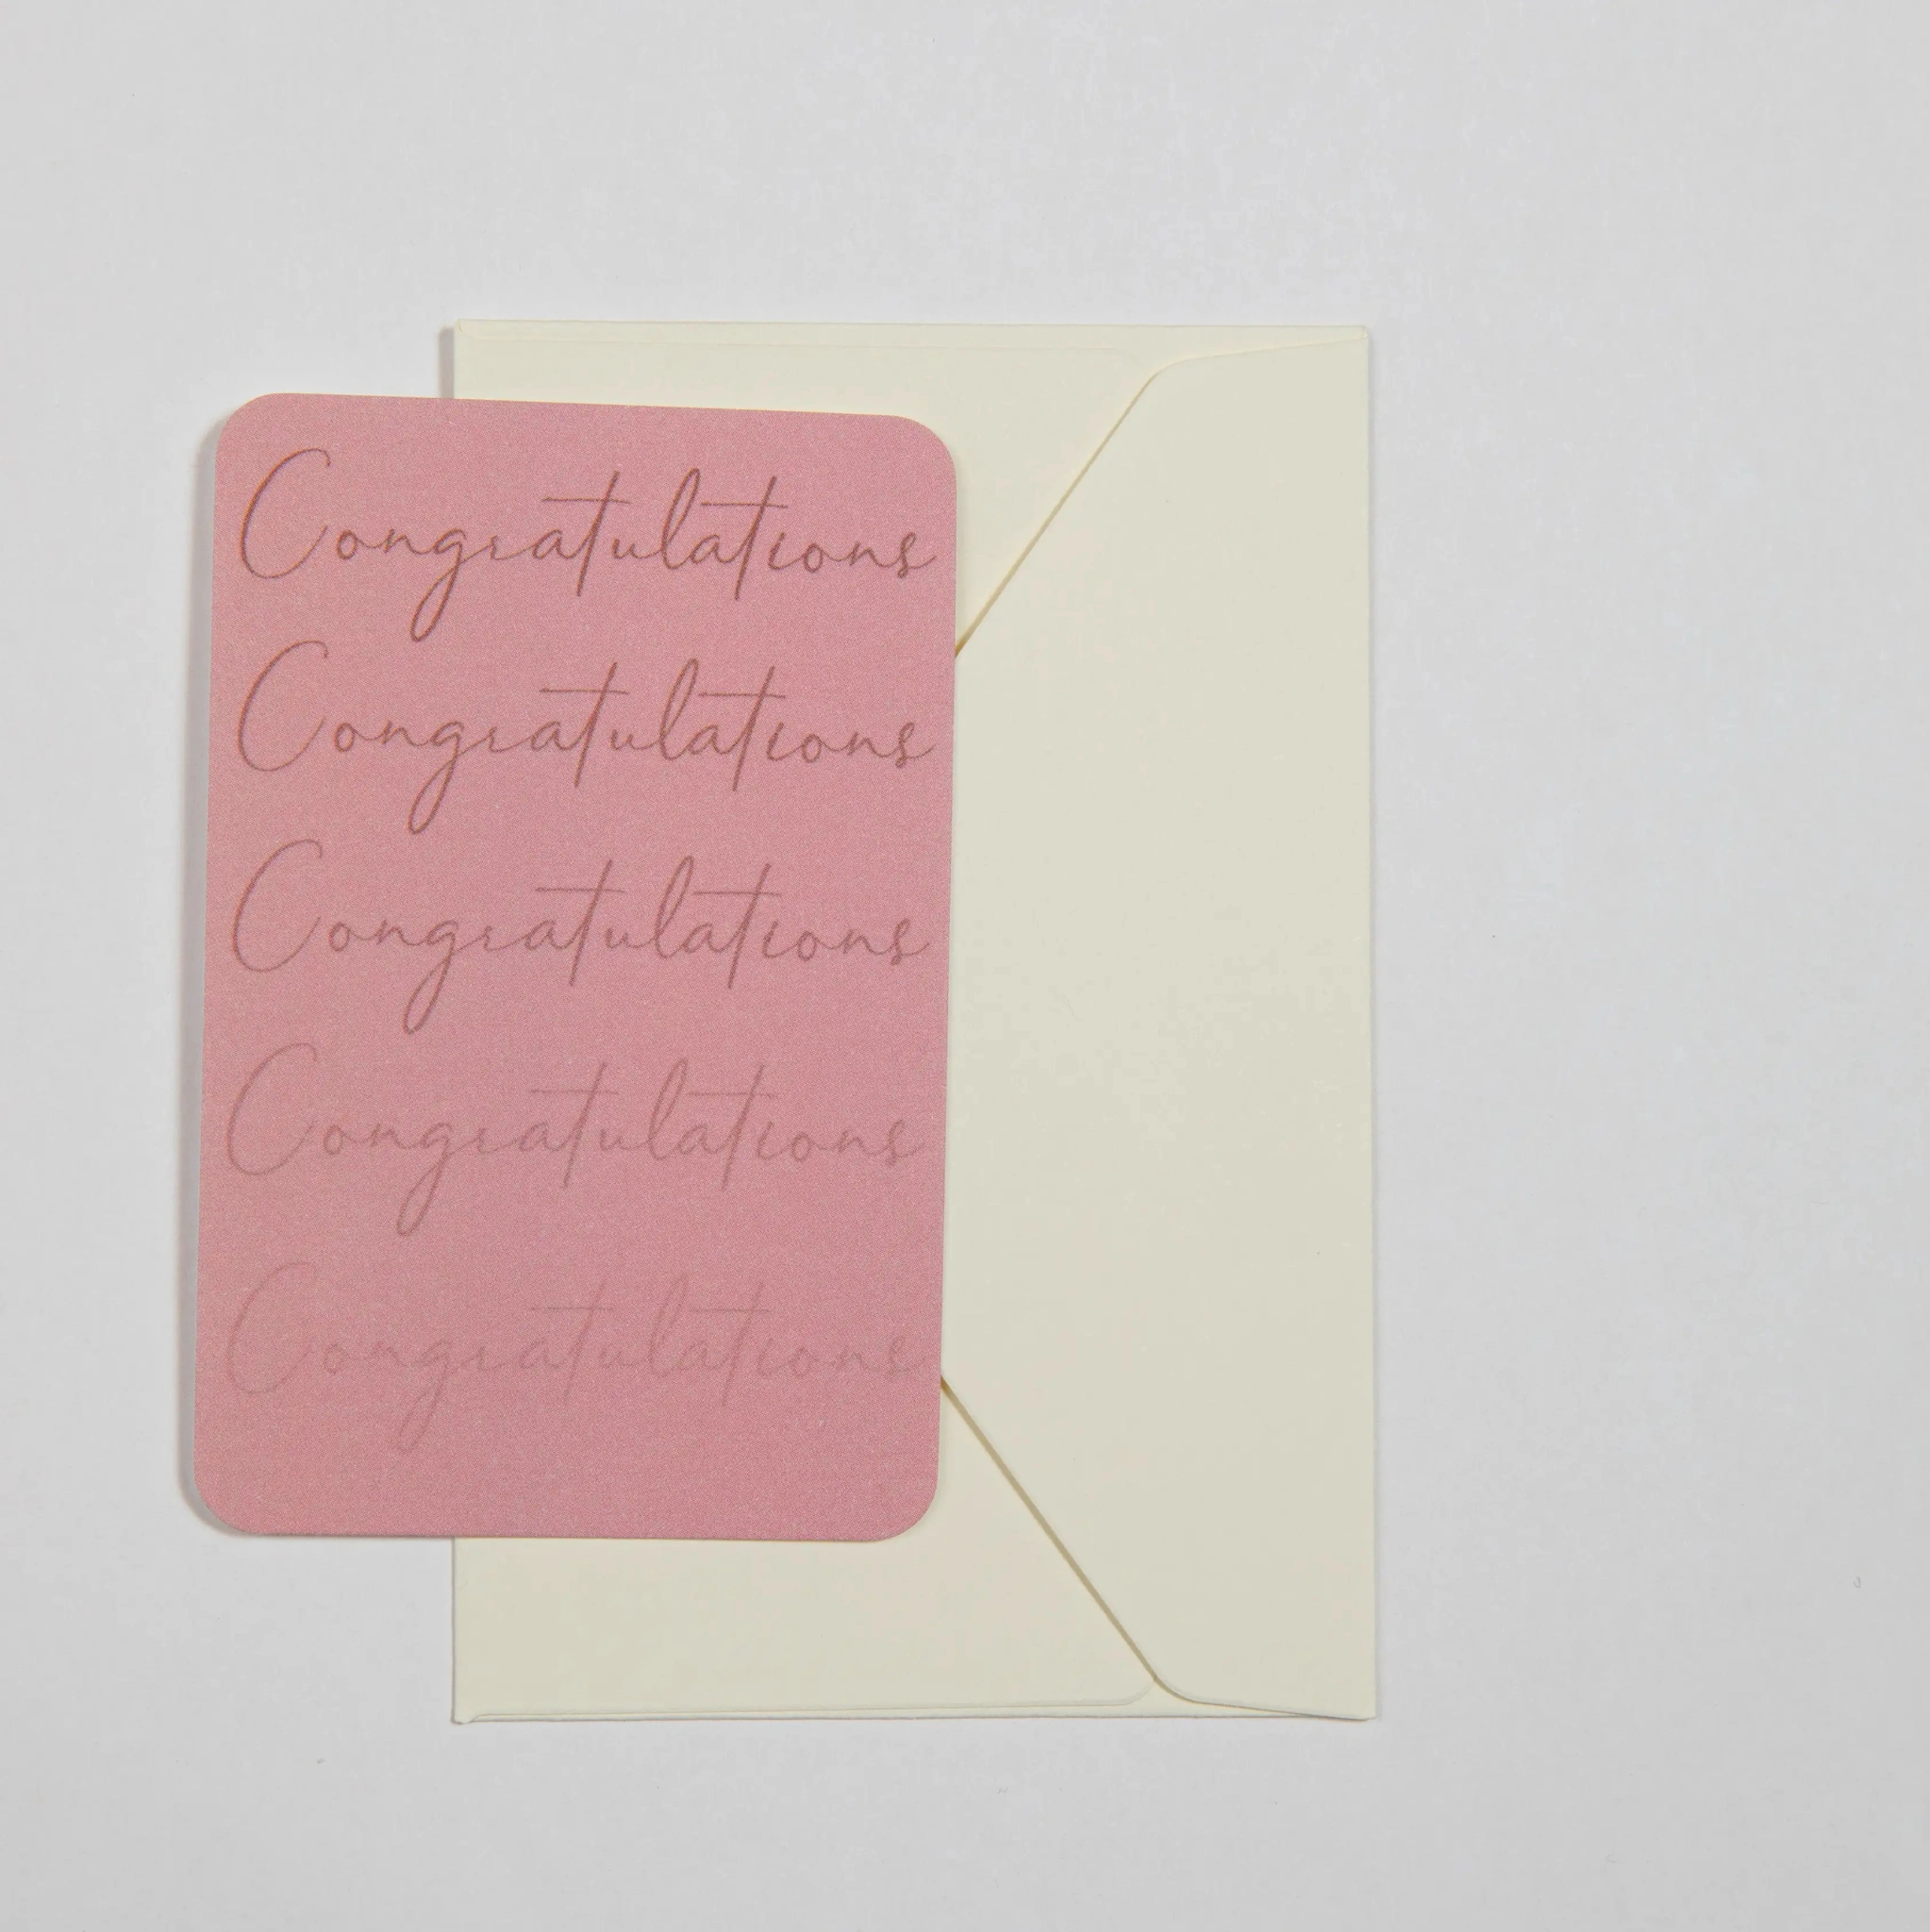 Congratulations
Congratulations
Congratulations
Congratulations
Congratulations